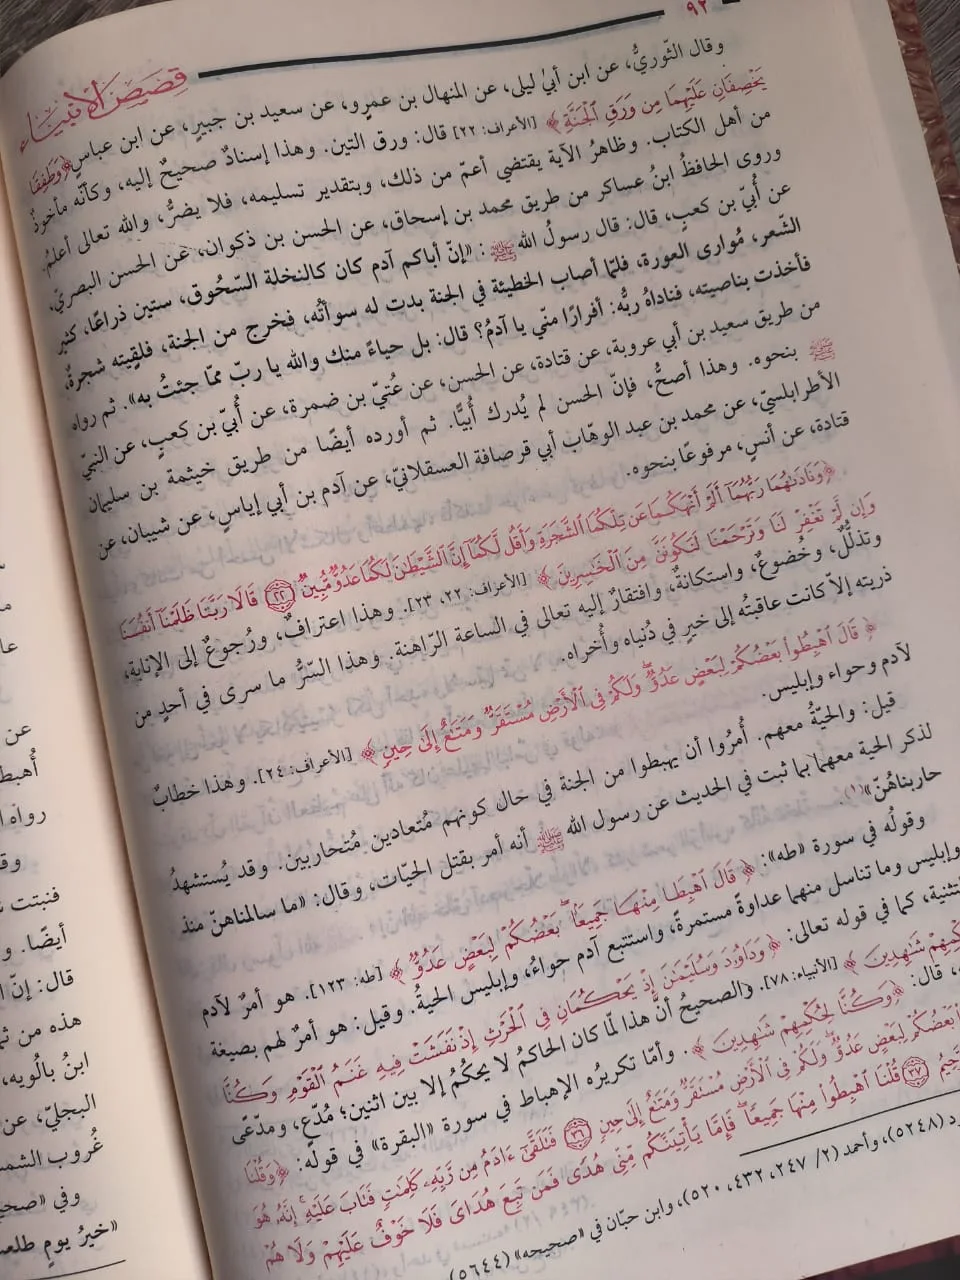 ٩٢
قصص الأنبياء
وقال الثّوريُّ، عن ابن أبي ليلى، عن المنهال بن عمرٍو، عن سعيد بن جبيرٍ، عن ابن عباسٍ ﴿وَطَفِقَا
يَخْصِفَانِ عَلَيْهِمَا مِن وَرَقِ ٱلْجَنَّةِ﴾ [الأعراف: ٢٢] قال: ورق التين. وهذا إسنادٌ صحيحٌ إليه، وكأنّه مأخوذٌ
من أهل الكتاب. وظاهرُ الآية يقتضي أعمّ من ذلك، وبتقدير تسليمه، فلا يضرُّ، والله تعالى أعلمُ.
وروى الحافظُ ابنُ عساكر من طريق محمد بن إسحاق، عن الحسن بن ذكوان، عن الحسن البصريّ،
عن أُبيّ بن كعبٍ، قال: قال رسولُ الله ﷺ: «إنّ أباكم آدم كان كالنخلة السّحُوق، ستين ذراعًا، كثير
الشّعر، مُوارى العورة، فلمّا أصاب الخطيئة في الجنة بدت له سوأتُه، فخرج من الجنة، فلقيته شجرةٌ،
فأخذت بناصيته، فناداهُ ربُّه: أفرارًا منّي يا آدمُ؟ قال: بل حياءً منك والله يا ربّ ممّا جئتُ به». ثم رواه
من طريق سعيد بن أبي عروبة، عن قتادة، عن الحسن، عن عُتيّ بن ضمرة، عن أُبيّ بن كعبٍ، عن النبيّ
ﷺ بنحوه. وهذا أصحُّ، فإنّ الحسن لم يُدرك أُبيًّا. ثم أورده أيضًا من طريق خيثمة بن سليمان
الأطرابلسيّ، عن محمد بن عبد الوهّاب أبي قرصافة العسقلانيّ، عن آدم بن أبي إياسٍ، عن شيبان، عن
قتادة، عن أنسٍ، مرفوعًا بنحوه.
﴿وَنَادَىٰهُمَا رَبُّهُمَآ أَلَمْ أَنْهَكُمَا عَن تِلْكُمَا ٱلشَّجَرَةِ وَأَقُل لَّكُمَآ إِنَّ ٱلشَّيْطَٰنَ لَكُمَا عَدُوٌّ مُّبِينٌ ۝٢٢ قَالَا رَبَّنَا ظَلَمْنَآ أَنفُسَنَا
وَإِن لَّمْ تَغْفِرْ لَنَا وَتَرْحَمْنَا لَنَكُونَنَّ مِنَ ٱلْخَٰسِرِينَ﴾ [الأعراف: ٢٢، ٢٣]. وهذا اعترافٌ، ورُجوعٌ إلى الإنابة،
وتذلُّلٌ، وخُضوعٌ، واستكانةٌ، وافتقارٌ إليه تعالى في الساعة الرّاهنة. وهذا السّرُّ ما سرى في أحدٍ من
ذريته إلاّ كانت عاقبتُه إلى خيرٍ في دُنياه وأُخراه.
﴿قَالَ ٱهْبِطُوا۟ بَعْضُكُمْ لِبَعْضٍ عَدُوٌّ ۖ وَلَكُمْ فِى ٱلْأَرْضِ مُسْتَقَرٌّ وَمَتَٰعٌ إِلَىٰ حِينٍ﴾ [الأعراف: ٢٤]. وهذا خطابٌ
لآدم وحواء وإبليس.
قيل: والحيّةُ معهم. أُمرُوا أن يهبطوا من الجنة في حال كونهم مُتعادين مُتحاربين. وقد يُستشهدُ
لذكر الحية معهما بما ثبت في الحديث عن رسول الله ﷺ أنه أمر بقتل الحيّات، وقال: «ما سالمناهنّ منذ
حاربناهُنّ»(١).
وقولُه في سورة «طه»: ﴿قَالَ ٱهْبِطَا مِنْهَا جَمِيعًۢا ۖ بَعْضُكُمْ لِبَعْضٍ عَدُوٌّ﴾ [طه: ١٢٣]. هو أمرٌ لآدم
وإبليس وما تناسل منهما عداوةً مستمرةً، واستتبع آدم حواءُ، وإبليس الحيةُ. وقيل: هو أمرٌ لهم بصيغة
التثنية، كما في قوله تعالى: ﴿وَدَاوُۥدَ وَسُلَيْمَٰنَ إِذْ يَحْكُمَانِ فِى ٱلْحَرْثِ إِذْ نَفَشَتْ فِيهِ غَنَمُ ٱلْقَوْمِ وَكُنَّا
لِحُكْمِهِمْ شَٰهِدِينَ﴾ [الأنبياء: ٧٨]. والصحيحُ أنَّ هذا لمّا كان الحاكمُ لا يحكُمُ إلا بين اثنين؛ مُدّعٍ، ومدّعًى
قال: ﴿وَكُنَّا لِحُكْمِهِمْ شَٰهِدِينَ﴾. وأمّا تكريرُه الإهباط في سورة «البقرة» في قوله: ﴿وَقُلْنَا
بَعْضُكُمْ لِبَعْضٍ عَدُوٌّ ۖ وَلَكُمْ فِى ٱلْأَرْضِ مُسْتَقَرٌّ وَمَتَٰعٌ إِلَىٰ حِينٍ ۝٣٦ فَتَلَقَّىٰٓ ءَادَمُ مِن رَّبِّهِۦ كَلِمَٰتٍ فَتَابَ عَلَيْهِ ۚ إِنَّهُۥ هُوَ
۝٣٧ قُلْنَا ٱهْبِطُوا۟ مِنْهَا جَمِيعًا ۖ فَإِمَّا يَأْتِيَنَّكُم مِّنِّى هُدًى فَمَن تَبِعَ هُدَاىَ فَلَا خَوْفٌ عَلَيْهِمْ وَلَا هُمْ
(٥٢٤٨)، وأحمد (٢/ ٢٤٧، ٤٣٢، ٥٢٠)، وابن حبّان في «صحيحه» (٥٦٤٤)
عن
رواه
وق
فنبتت
أيضًا. و
قال: إنّ
هذه من
ابنُ بالُويه،
البجليّ، عن
غُروب الشمس
وفي «صحي
«خيرُ يومٍ طلعت